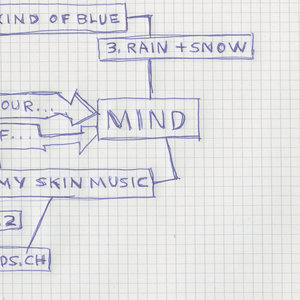 KIND OF BLUE
3. RAIN + SNOW
OUR...
MIND
F...
MY SKIN MUSIC
.2
DS.CH